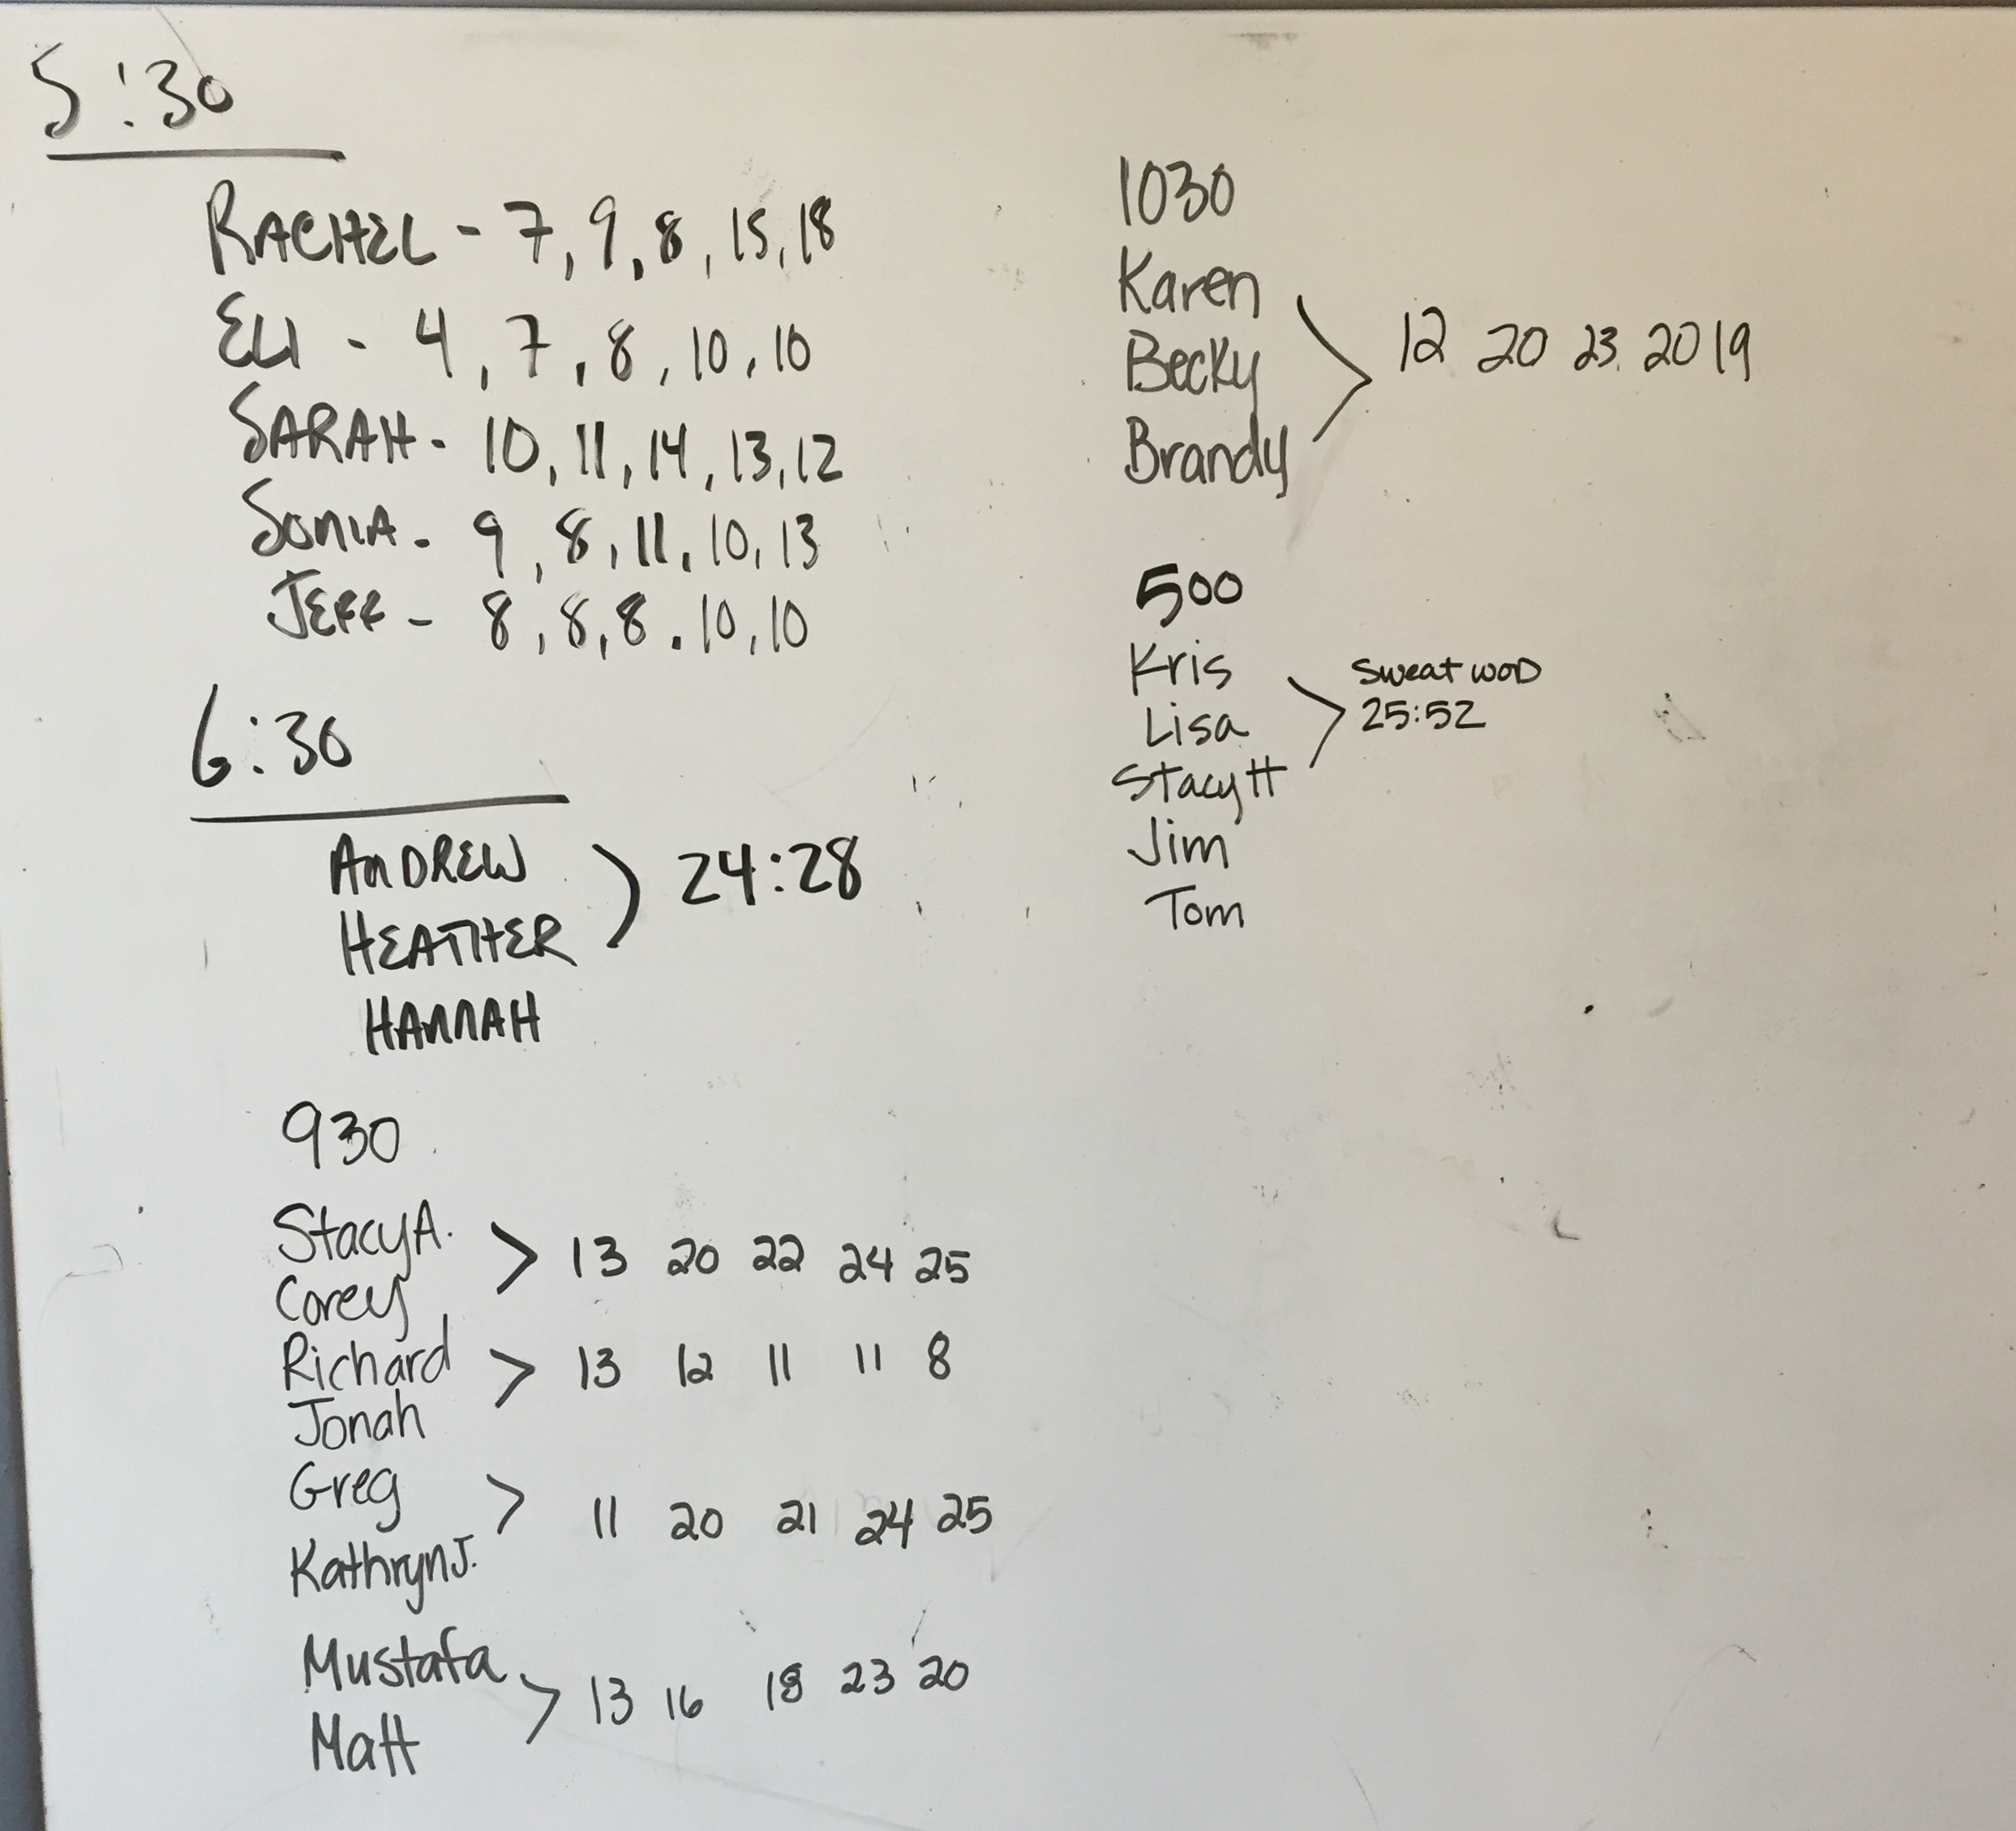 5:30
RACHEL - 7, 9, 8, 15, 18
ELI - 4, 7, 8, 10, 10
SARAH - 10, 11, 14, 13, 12
SONIA - 9, 8, 11, 10, 13
JEFF - 8, 8, 8, 10, 10
6:30
ANDREW
HEATHER ) 24:28
HANNAH
930
Stacy A. > 13 20 22 24 25
Corey
Richard > 13 12 11 11 8
Jonah
Greg > 11 20 21 24 25
Kathryn J.
Mustafa > 13 16 18 23 20
Matt
1030
Karen
Becky > 12 20 23 20 19
Brandy
500
Kris
Lisa > Sweat WOD
25:52
Stacy H
Jim
Tom